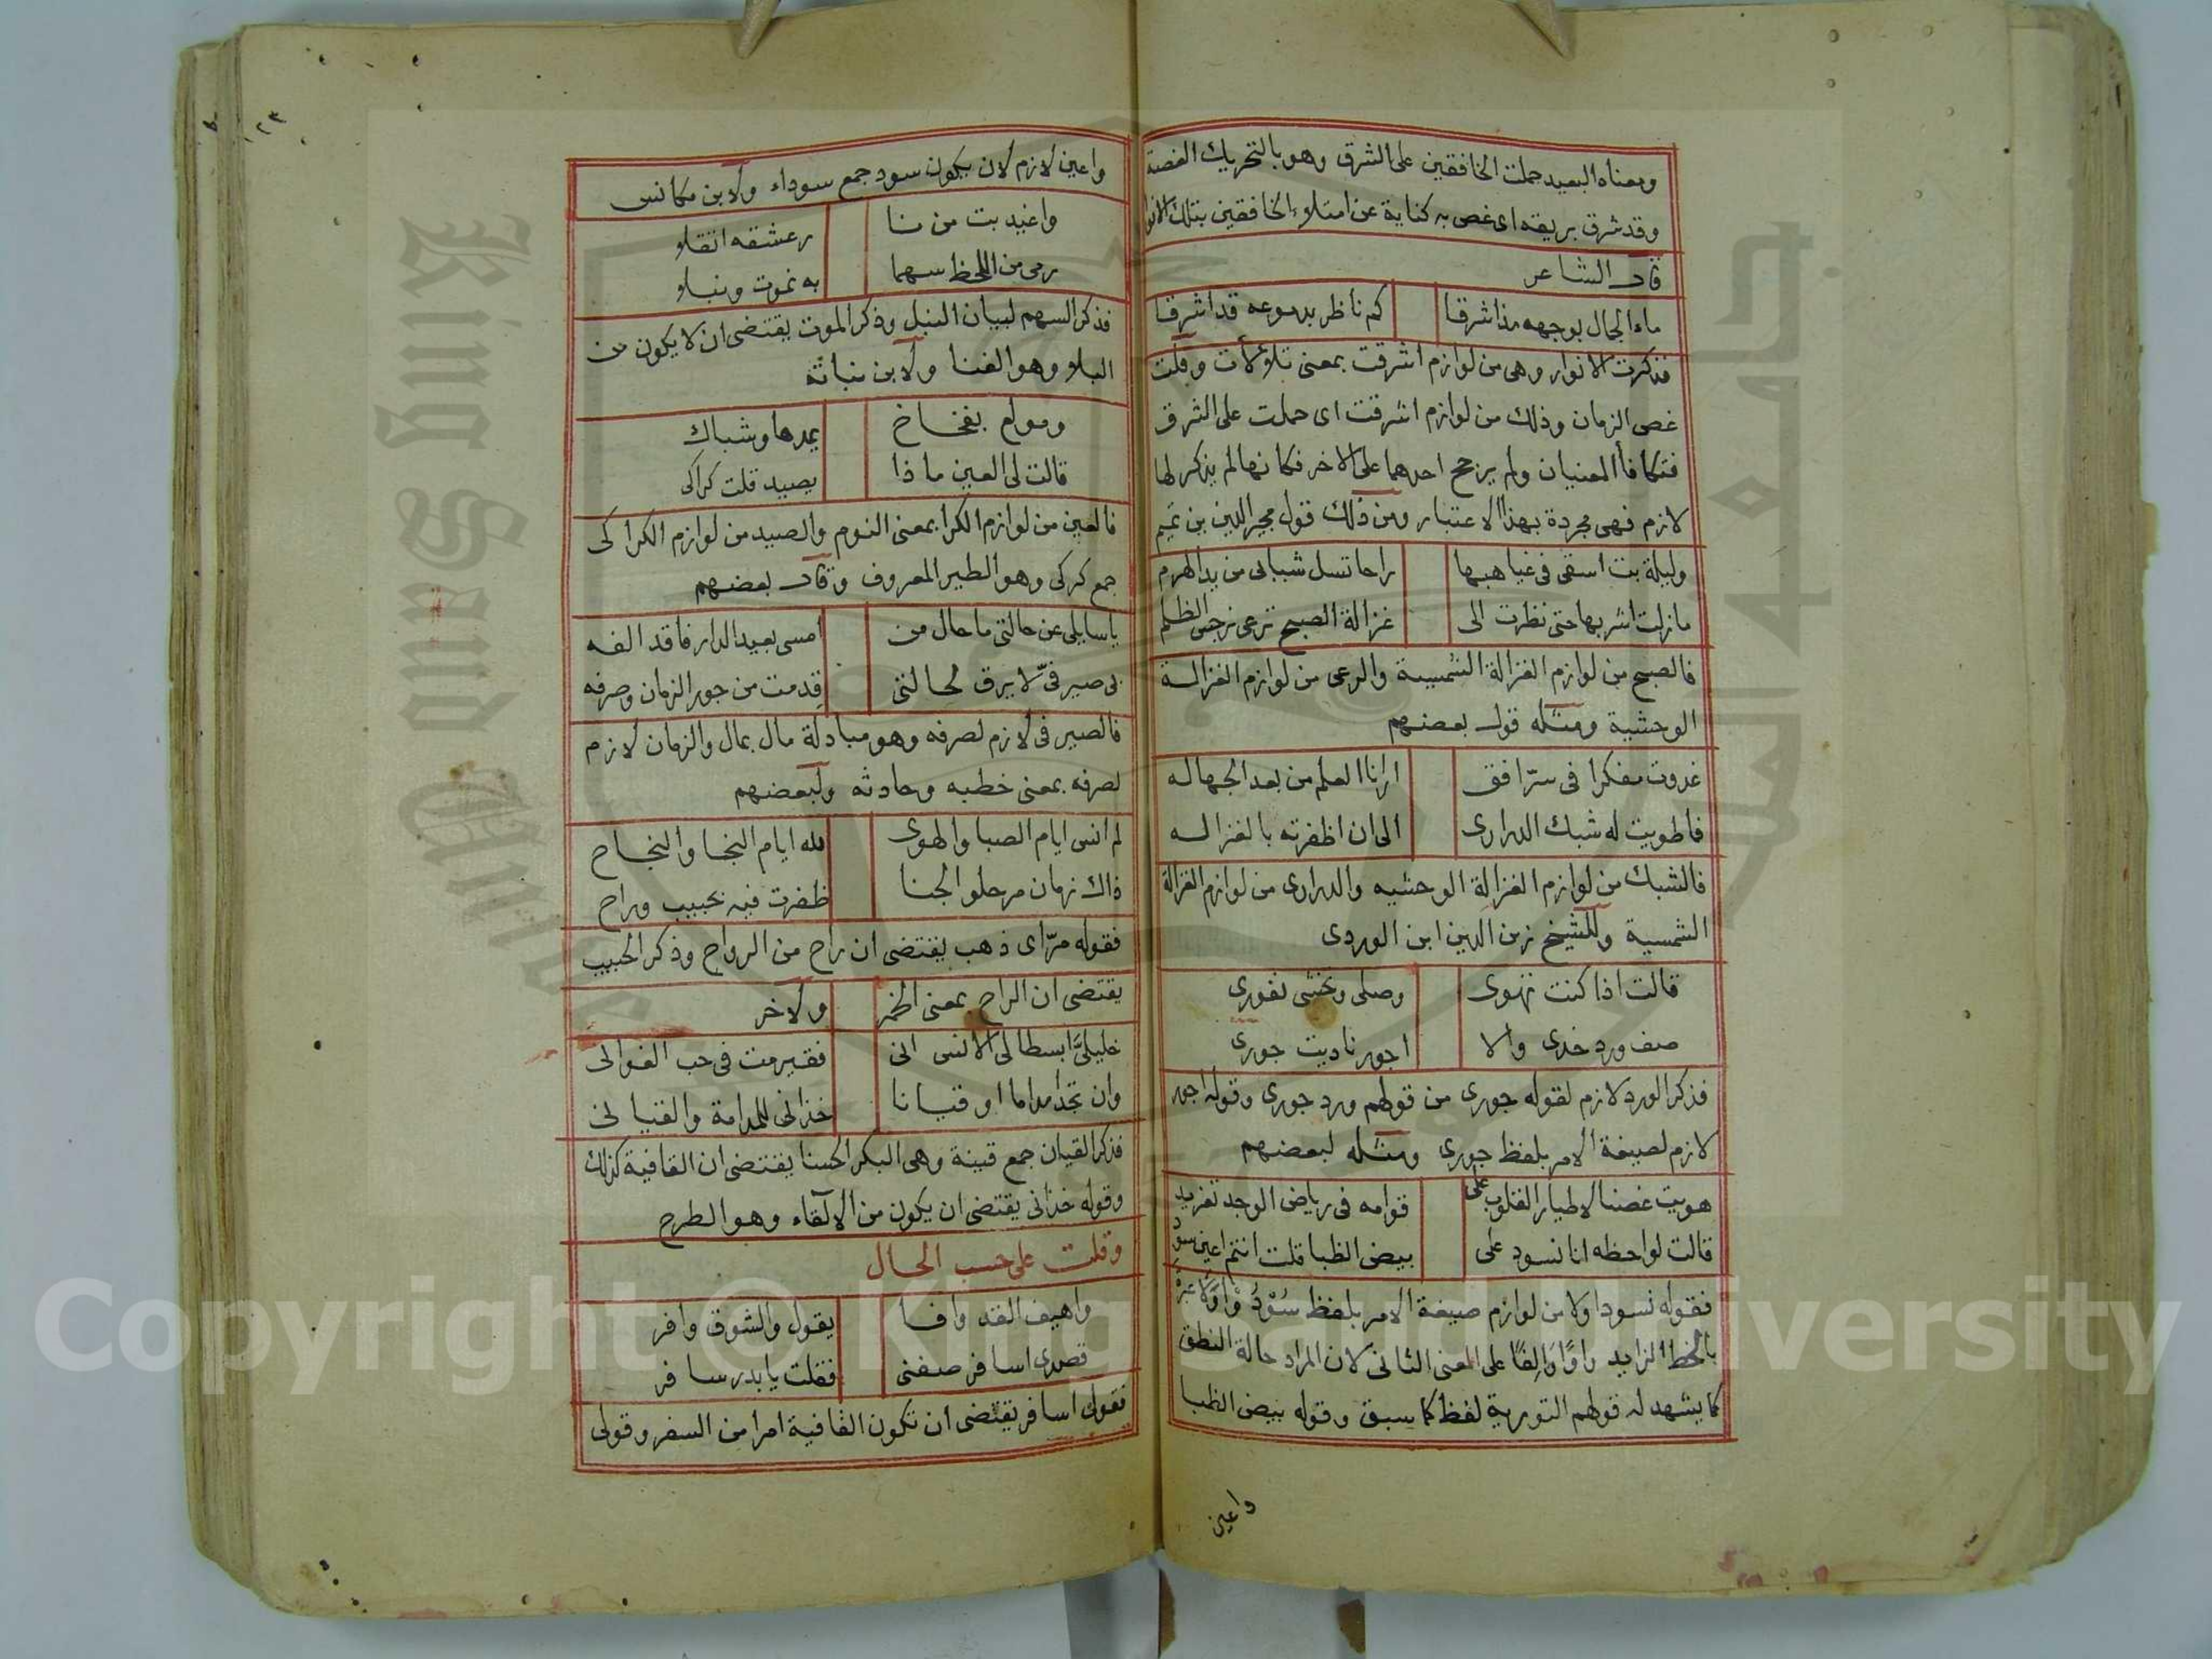 ومعناه البعيد حملت الخافقين على الشرق وهو بالتحريك الغصة
وقد شرق بريقه اى غص به كناية عن امتلاء الخافقين بتلك الانوار
قال الشاعر
ماء الجمال بوجهه مذ اشرقا كم ناظر بدموعه قد اشرقا
فذكرت الانوار وهى من لوازم اشرقت بمعنى تلاولات وقلت
غص الزمان وذلك من لوازم اشرقت اى حملت على الشرق
فتكافأ المعنيان ولم يرجح احدهما على الاخر فكانها لم يذكر لها
لازم فهى مجردة بهذا الاعتبار ومن ذلك قول مجير الدين بن تميم
وليلة بت اسقى فى غياهبها راحا تسل شبابى من يد الهرم
ما زلت اشربها حتى نظرت الى غزالة الصبح ترعى نرجس الظلم
فالصبح من لوازم الغزالة الشمسية والرعى من لوازم الغزالة
الوحشية ومثله قول بعضهم
غدوت مفكرا فى سر افق ارانا العلم من بعد الجهاله
فما طويت له شبك الدرارى الى ان اظفرته بالغزاله
فالشبك من لوازم الغزالة الوحشيه والدرارى من لوازم الغزالة
الشمسية وللشيخ زين الدين ابن الوردى
قالت اذا كنت تهوى وصلى وتخشى نفورى
صف ورد خدى والا اجور ناديت جورى
فذكر الورد لازم لقوله جورى من قولهم ورد جورى وقوله اجور
لازم لصيغة الامر بلفظ جورى ومثله لبعضهم
هويت غصنا لاطيار القلوب على قوامه فى رياض الوجد تغريد
قالت لواحظه انا نسود على بيض الظبا قلت انتم اعين سود
فقوله نسود اولا من لوازم صيغة الامر بلفظ سُوْدُوْا ولا عبرة
بالخط الزايد واوًا وَالِفًا على المعنى الثانى لان المراد حالة النطق
كما يشهد له قولهم التورية لفظ كما سبق وقوله بيض الظبا
واعين
١٢٣
واعين لازم لان يكون سود جمع سوداء ولابن مكانس
واغيد بت من نا ر عشقه اتقلا
رمى من اللحظ سهما به نموت ونبلا
فذكر السهم لبيان النبل وذكر الموت يقتضى ان لا يكون من
البلا وهو الفنا ولابن نباته
ومولع بفخاخ يمدها وشباك
قالت لى العين ماذا يصيد قلت كراكى
فالعين من لوازم الكرا بمعنى النوم والصيد من لوازم الكراكى
جمع كركى وهو الطير المعروف وقال بعضهم
ياسايلى عن حالتى ما حال من امسى بعيد الدار فاقد الفه
بى صيرفىّ لا يرق لحالتى قدمت من جور الزمان وصرفه
فالصيرفى لازم لصرفه وهو مبادلة مال بمال والزمان لازم
لصرفه بمعنى خطبه وحادثه ولبعضهم
لم انس ايام الصبا والهوى لله ايام النجا والنجاح
ذاك زمان مر حلو الجنا ظفرت فيه بحبيب وراح
فقوله مرّ اى ذهب يقتضى ان راح من الرواح وذكر الحبيب
يقتضى ان الراح بمعنى الخمر ولاخر
خليلىَّ ابسطا لى الانس انى فقير مت فى حب الغوالى
وان تجدا مداما او قيانا خذانى للمدامة والقيانى
فذكر القيان جمع قينة وهى البكر الحسنا يقتضى ان القافية كذلك
وقوله خذانى يقتضى ان يكون من الالقاء وهو الطرح
وقلت على حسب الحال
واهيف القد وافا يقول والشوق وافر
قصدى اسافر صفنى فقلت يا بدر سافر
فقولى اسافر يقتضى ان تكون القافية امرا من السفر وقولى
Copyright © King Saud University